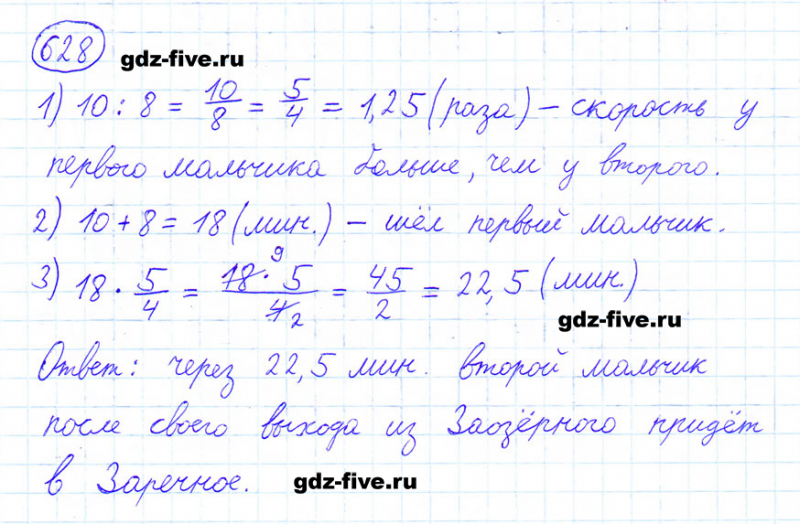 628
gdz-five.ru
1) 10 : 8 = 10/8 = 5/4 = 1,25 (раза) – скорость у
первого мальчика больше, чем у второго.
2) 10 + 8 = 18 (мин.) – шёл первый мальчик.
3) 18 · 5/4 = 18 9 · 5 / 4 2 = 45/2 = 22,5 (мин.)
gdz-five.ru
Ответ: через 22,5 мин. второй мальчик
после своего выхода из Заозёрного придёт
в Заречное.
gdz-five.ru